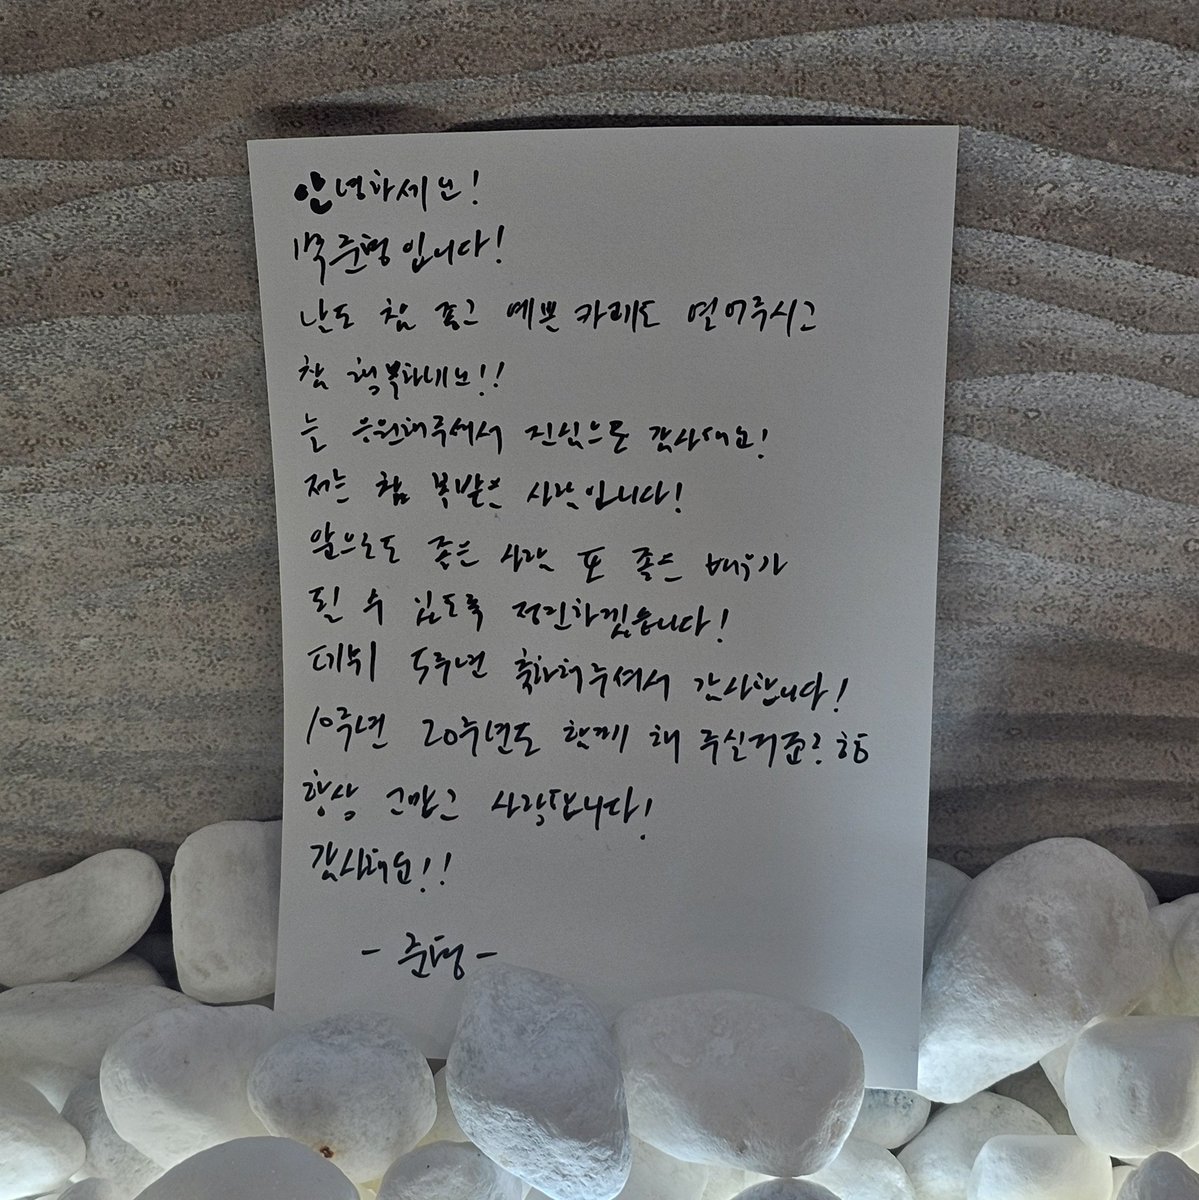 안녕하세요!
박준형입니다!
날도 참 좋고 예쁜 카페도 열어주시고
참 행복하네요!!
늘 응원해주셔서 진심으로 감사해요!
저는 참 복받은 사람입니다!
앞으로도 좋은 사람 또 좋은 배우가
될 수 있도록 정진하겠습니다!
데뷔 5주년 축하해주셔서 감사합니다!
10주년 20주년도 함께 해 주실거죠?
항상 고맙고 사랑합니다!
감사해요!!
- 준형 -